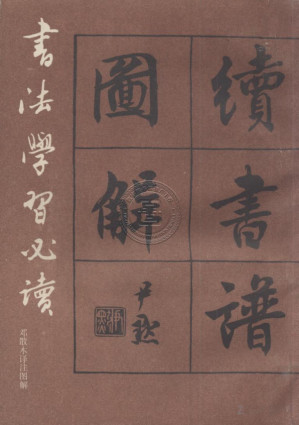 書法學習必讀
續書譜
圖解
尹默
邓散木译注图解